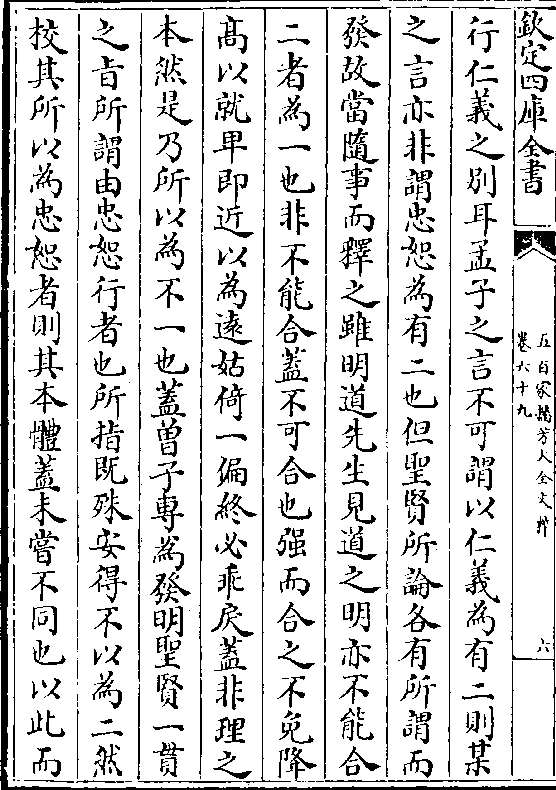 欽定四庫全書
五百家播芳大全文粹
卷六十九
六
行仁義之别耳孟子之言不可謂以仁義為有二則某
之言亦非謂忠恕為有二也但聖賢所論各有所謂而
發故當隨事而釋之雖明道先生見道之明亦不能合
二者為一也非不能合蓋不可合也强而合之不免降
髙以就卑即近以為逺姑倚一偏終必乖戾蓋非理之
本然是乃所以為不一也蓋曽子専為發明聖賢一貫
之㫖所謂由忠恕行者也所指既殊安得不以為二然
校其所以為忠恕者則其本體蓋未嘗不同也以此而